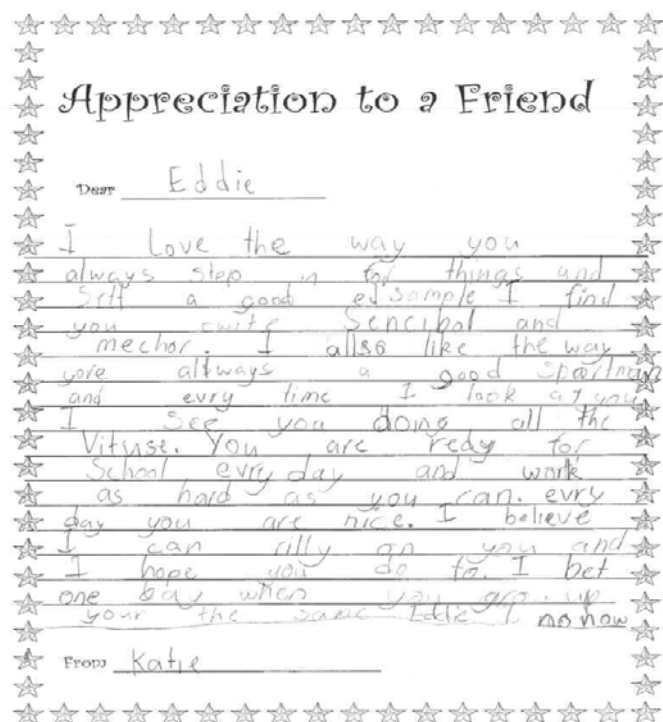 Appreciation to a Friend
Dear Eddie
I Love the way you
always step in for things and
Sett a good edsample I find
you cwite Sencibol and
mechor. I allso like the way
yore altways a good Sportman
and evry time I look at you
I See you doing all the
Vituse. You are redy for
School evry day and work
as hard as you can. evry
day you are nice. I believe
I can rilly on you and
I hope you do to. I bet
one bay when you grow up
your the same Eddie I no now
From Katie